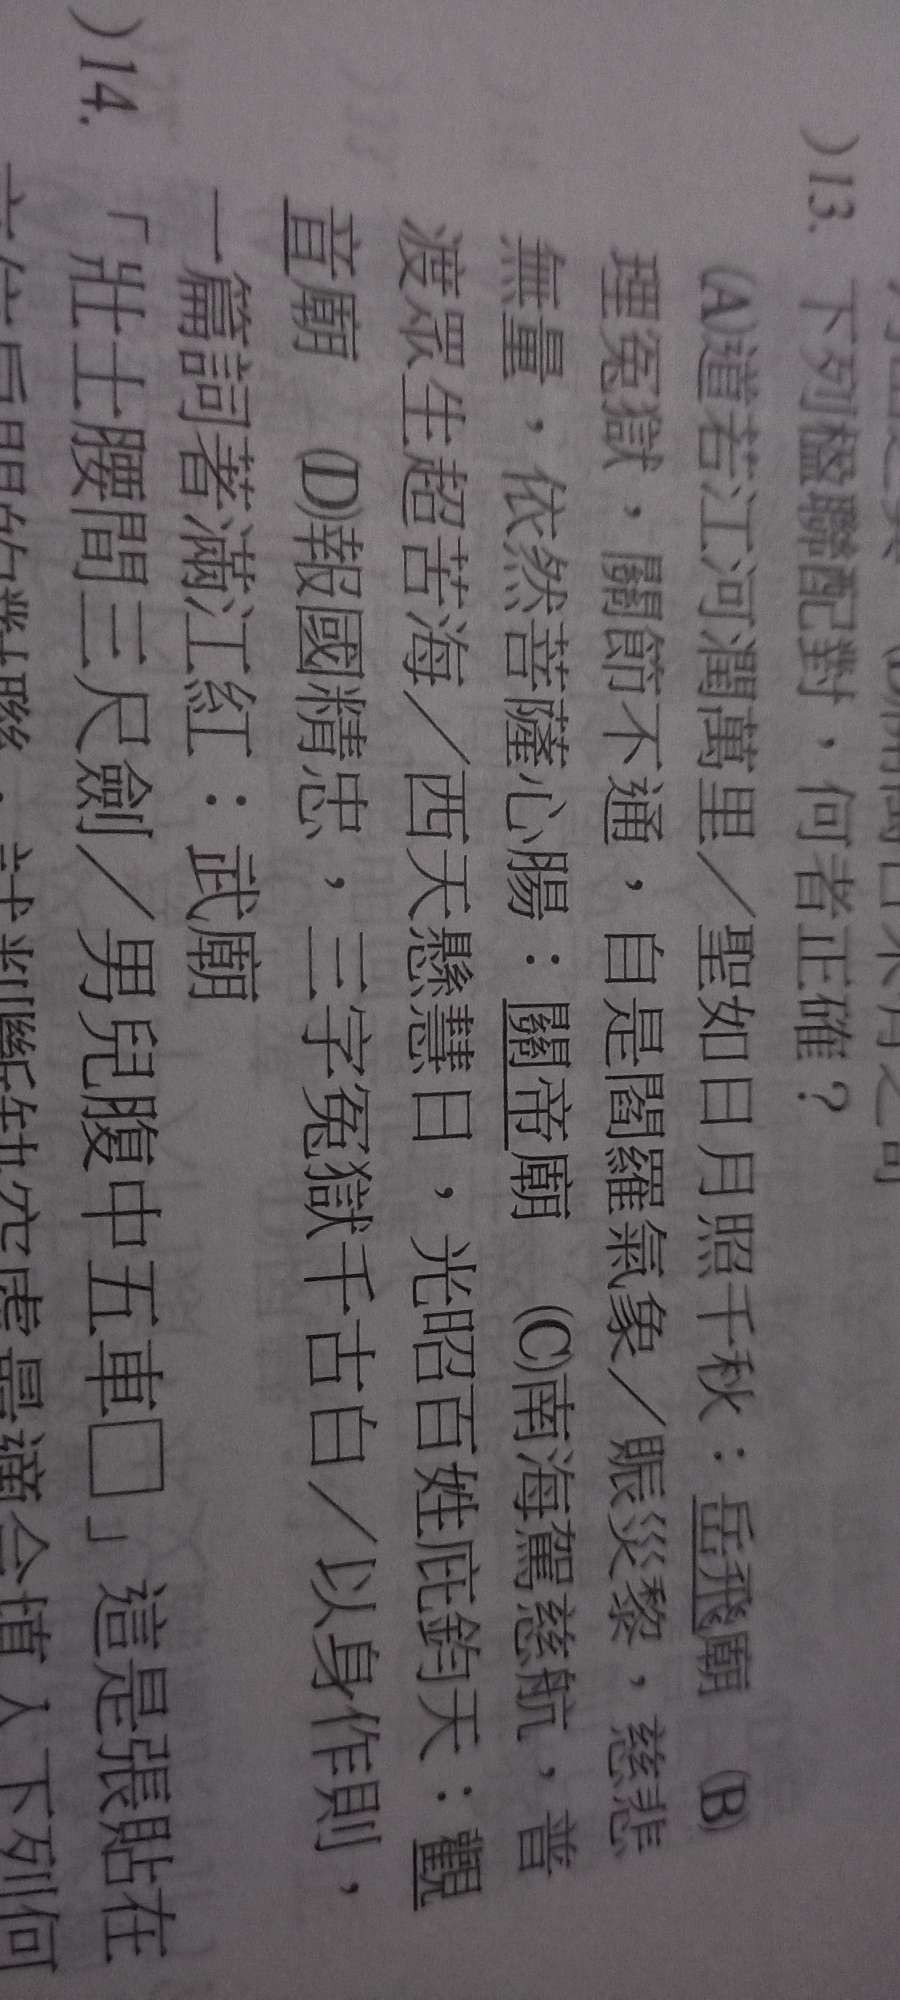 )13. 下列楹聯配對，何者正確？
(A)道若江河潤萬里／聖如日月照千秋：岳飛廟　(B)
理冤獄，關節不通，自是閻羅氣象／賑災黎，慈悲
無量，依然菩薩心腸：關帝廟　(C)南海駕慈航，普
渡眾生超苦海／西天懸慧日，光昭百姓庇鈞天：觀
音廟　(D)報國精忠，三字冤獄千古白／以身作則，
一篇詞著滿江紅：武廟
)14. 「壯士腰間三尺劍／男兒腹中五車□」這是張貼在
的對聯，試判斷缺空處最適合填入下列何